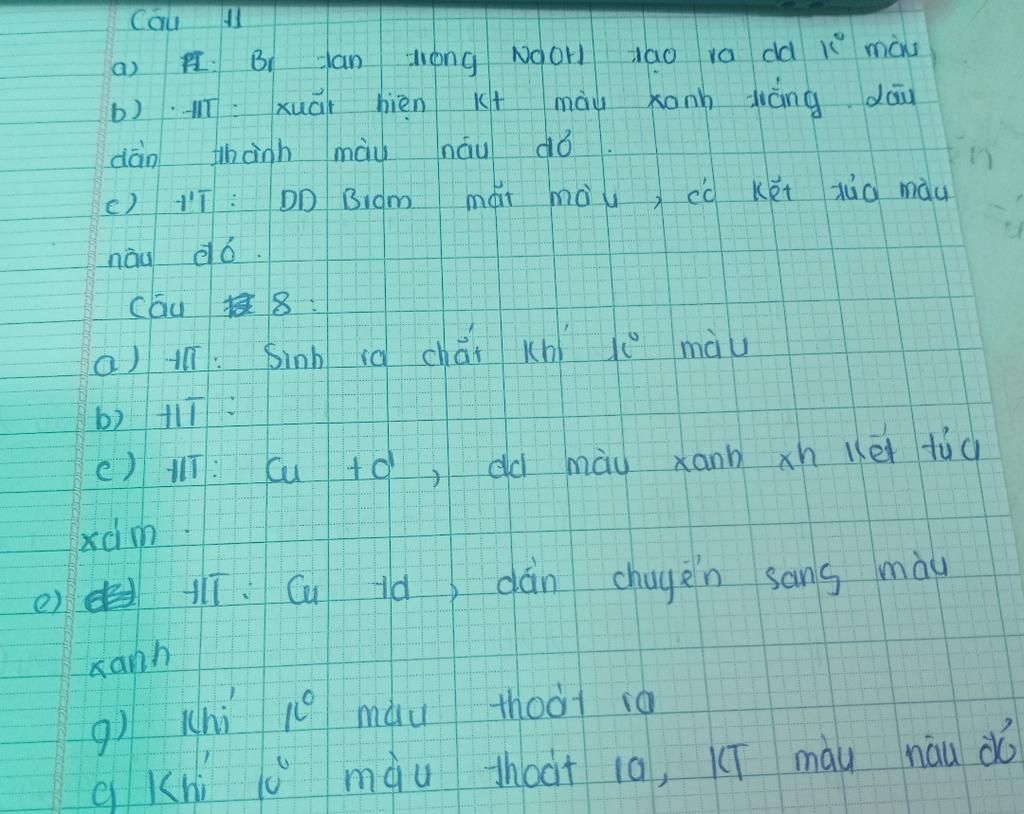 Câu 11
a) HT: Br tan trong NaOH tạo ra dd k° màu
b) HT: xuất hiện kt màu xanh trắng dần
dần thành màu nâu đỏ.
c) HT: DD Brom mất màu, có kết tủa màu
nâu đỏ.
Câu 8:
a) HT: Sinh ra chất khí k° màu
b) HT:
c) HT: Cu td, dd màu xanh xh kết tủa
xám.
e) HT: Cu td, dần chuyển sang màu
xanh
g) Khí k° màu thoát ra
g Khí k° màu thoát ra, KT màu nâu đỏ